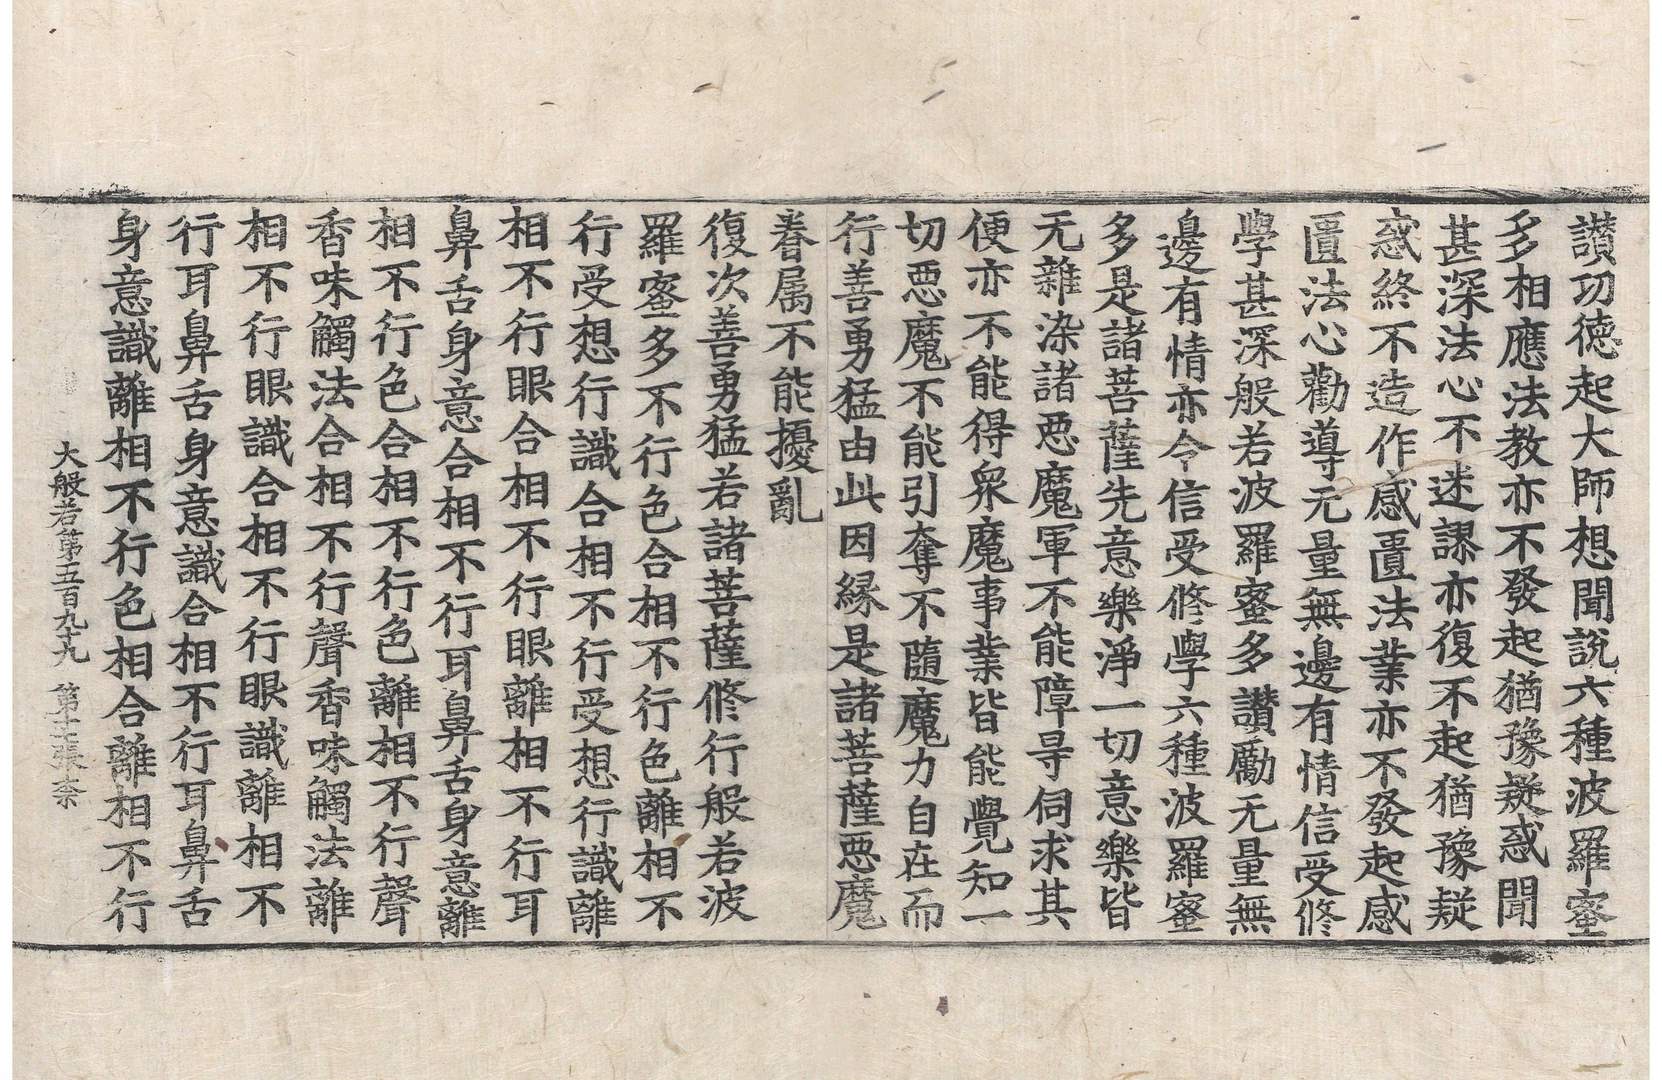 讃功德起大師想聞說六種波羅蜜
多相應法教亦不發起猶豫疑惑聞
甚深法心不迷謬亦復不起猶豫疑
惑終不造作感匱法業亦不發起感
匱法心勸導无量無邊有情信受修
學甚深般若波羅蜜多讃勵无量無
邊有情亦令信受修學六種波羅蜜
多是諸菩薩先意樂淨一切意樂皆
无雜染諸惡魔軍不能障导伺求其
便亦不能得衆魔事業皆能覺知一
切惡魔不能引奪不隨魔力自在而
行善勇猛由此因緣是諸菩薩惡魔
眷属不能擾亂
復次善勇猛若諸菩薩修行般若波
羅蜜多不行色合相不行色離相不
行受想行識合相不行受想行識離
相不行眼合相不行眼離相不行耳
鼻舌身意合相不行耳鼻舌身意離
相不行色合相不行色離相不行聲
香味觸法合相不行聲香味觸法離
相不行眼識合相不行眼識離相不
行耳鼻舌身意識合相不行耳鼻舌
身意識離相不行色相合離相不行
大般若第五百九十九 第十二張奈